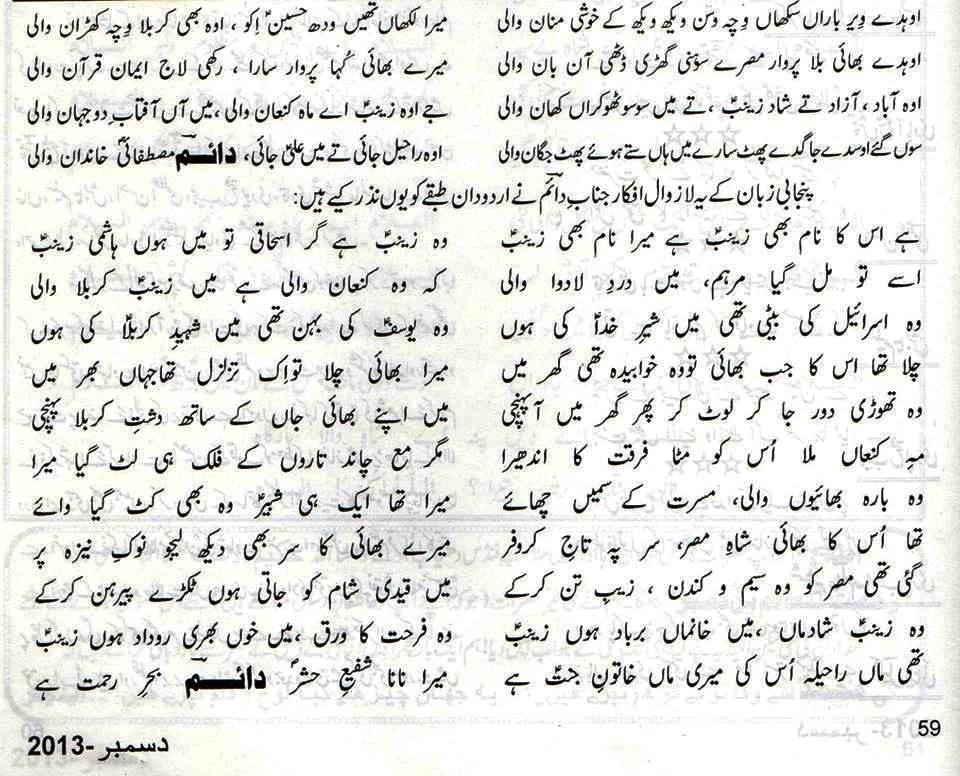 اوہدے ویر باراں سکھاں وچہ وسن ویکھ ویکھ کے خوشی منان والی میرا لکھاں تھیں ودھ حسینؑ اکو ، اوہ بھی کربلا وچہ کھڑان والی
اوہدے بھائی بلا پروار مصرے سوہنی گھڑی ڈٹھی آن بان والی میرے بھائی کُہا پروار سارا ، رکھی لاج ایمان قرآن والی
اوہ آباد ، آزاد تے شاد زینبؑ ، تے میں سوسوٹھوکراں کھان والی جے اوہ زینبؑ اے ماہ کنعان والی ، میں آں آفتابِ دوجہان والی
سوں گئے اوسدے جاگدے پھٹ سارے میں ہاں ستے ہوئے پھٹ جگان والی اوہ راحیل جائی تے میں علیؑ جائی، دائمؔ مصطفائیؐ خاندان والی
پنجابی زبان کے یہ لازوال افکار جنابِ دائمؔ نے اردو دان طبقے کو یوں نذر کیے ہیں:
ہے اس کا نام بھی زینبؑ ہے میرا نام بھی زینبؑ وہ زینبؑ ہے گر اسحاتی تو میں ہوں ہاشمی زینبؑ
اسے تو مل گیا مرہم، میں دردِ لادوا والی کہ وہ کنعان والی ہے میں زینبؑ کربلا والی
وہ اسرائیل کی بیٹی تھی میں شیرِ خداؑ کی ہوں وہ یوسفؑ کی بہن تھی میں شہیدِ کربلاؑ کی ہوں
چلا تھا اس کا جب بھائی تو وہ خوابیدہ تھی گھر میں میرا بھائی چلا تو اِک تزلزل تھا جہاں بھر میں
وہ تھوڑی دور جا کر لوٹ کر پھر گھر میں آ پہنچی میں اپنے بھائی جاں کے ساتھ دشتِ کربلا پہنچی
مہِ کنعاں ملا اُس کو مٹا فرقت کا اندھیرا مگر مع چاند تاروں کے فلک ہی لٹ گیا میرا
وہ بارہ بھائیوں والی، مسرت کے سمیں چھائے میرا تھا ایک ہی شبیرؑ وہ بھی کٹ گیا وائے
تھا اُس کا بھائی شاہِ مصر، سر پہ تاجِ کروفر میرے بھائی کا سر بھی دیکھ لیجو نوکِ نیزہ پر
گئی تھی مصر کو وہ سیم و کندن ، زیبِ تن کرکے میں قیدی شام کو جاتی ہوں ٹکڑے پیرہن کرکے
وہ زینبؑ شادماں ، میں خانماں برباد ہوں زینبؑ وہ فرحت کا ورق ، میں خوں بھری روداد ہوں زینبؑ
تھی ماں راحیلہ اُس کی میری ماں خاتونِ جنتؑ ہے میرا نانا شفیعِ حشرؐ دائمؔ بحرِ رحمت ہے
59
دسمبر -2013